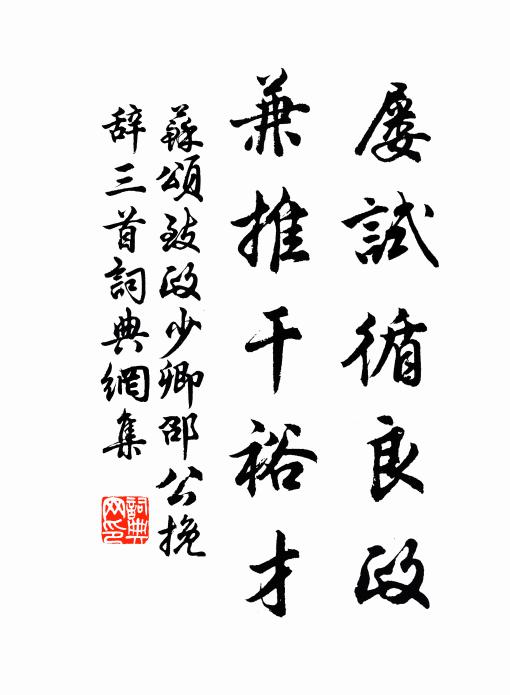 屡試循良政
兼推干裕才
蘇頌致政少卿邵公挽
辞三首詞典網集
詞典网印